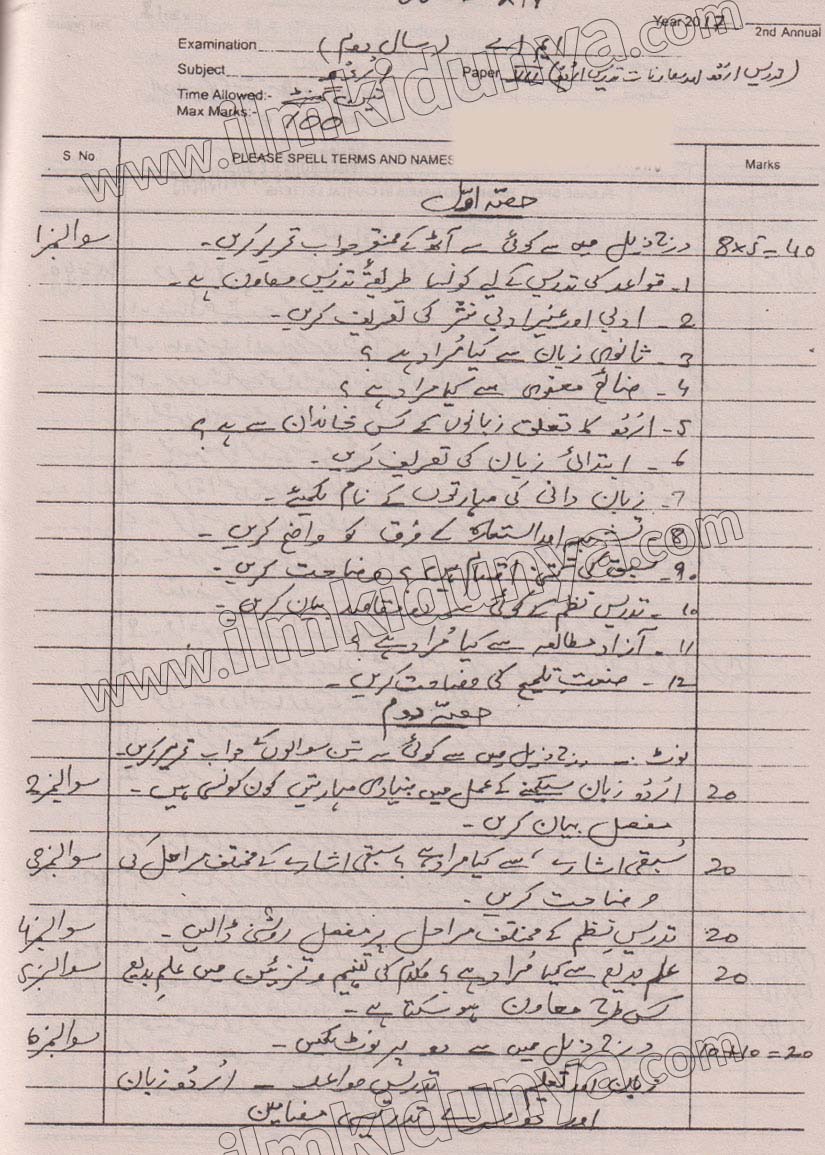 Year 2017
2nd Annual
Examination ایم اے (سال دوم)
Subject
Paper VII (تدریس اردو اور معاونات تدریس اردو)
Time Allowed:- تین گھنٹے
Max Marks:- 100
S No. PLEASE SPELL TERMS AND NAMES Marks
حصہ اوّل
سوال نمبر1 درج ذیل میں سے کوئی سے آٹھ کے مختصر جواب تحریر کریں۔ 8x5=40
1۔ قواعد کی تدریس کے لیے کونسا طریقۂ تدریس معاون ہے۔
2۔ ادبی اور غیر ادبی نثر کی تعریف کریں۔
3۔ ثانوی زبان سے کیا مُراد ہے؟
4۔ صنائع معنوی سے کیا مراد ہے؟
5۔ اُردو کا تعلق زبانوں کے کس خاندان سے ہے؟
6۔ ابتدائی زبان کی تعریف کریں۔
7۔ زبان دانی کی مہارتوں کے نام لکھیئے۔
8۔ تشبیہہ اور استعارہ کے فرق کو واضح کریں۔
9۔ کی کتنی اقسام ہیں؟ وضاحت کریں۔
10۔ تدریس نظم کے کوئی سے دو مقاصد بیان کریں۔
11۔ آزاد مطالعہ سے کیا مُراد ہے؟
12۔ صنعتِ تلمیح کی وضاحت کریں۔
حصہ دوم
نوٹ:۔ درج ذیل میں سے کوئی سے تین سوالوں کے جواب تحریر کریں۔
سوال نمبر2 اُردو زبان سیکھنے کے عمل میں بنیادی مہارتیں کون کونسی ہیں۔ 20
مفصل بیان کریں۔
سوال نمبر3 سبقی اشارے سے کیا مراد ہے؟ سبقی اشارے کے مختلف مراحل کی 20
وضاحت کریں۔
سوال نمبر4 تدریسِ نظم کے مختلف مراحل پر مفصل روشنی ڈالیں۔ 20
سوال نمبر5 علم بدیع سے کیا مُراد ہے؟ کلام کی تفہیم و تزئین میں علمِ بدیع 20
کس طرح معاون ہو سکتا ہے۔
سوال نمبر6 درج ذیل میں سے دو پر نوٹ لکھیں۔ 10x10=20
زبان اور تعلیم ۔ تدریس قواعد ۔ اُردو زبان
اور دوسرے تدریسی مضامین
www.ilmkidunya.com
www.ilmkidunya.com
www.ilmkidunya.com
ilmkidunya.com